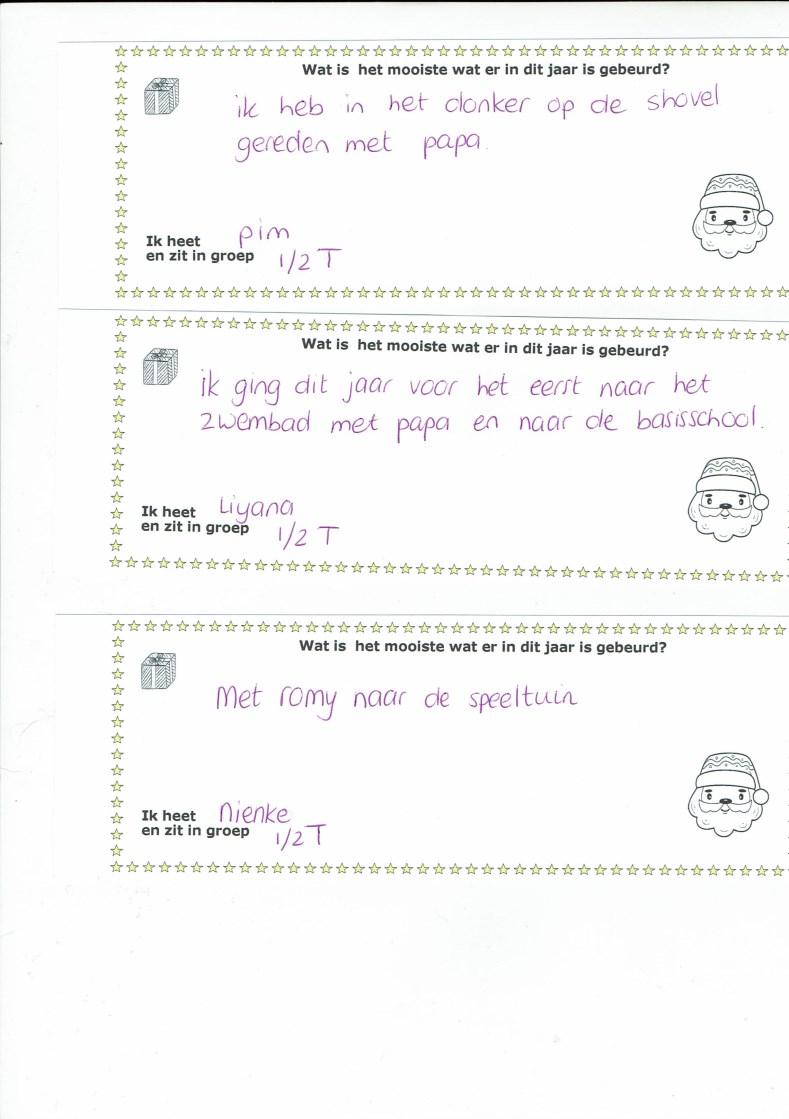 Wat is het mooiste wat er in dit jaar is gebeurd?
ik heb in het donker op de shovel
gereden met papa.
Ik heet pim
en zit in groep 1/2 T
Wat is het mooiste wat er in dit jaar is gebeurd?
ik ging dit jaar voor het eerst naar het
zwembad met papa en naar de basisschool.
Ik heet Liyana
en zit in groep 1/2 T
Wat is het mooiste wat er in dit jaar is gebeurd?
Met romy naar de speeltuin
Ik heet nienke
en zit in groep 1/2 T